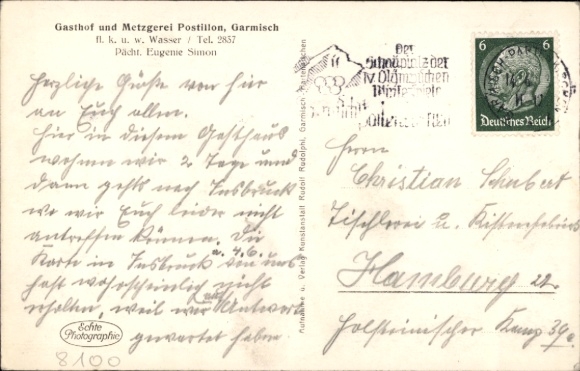 Gasthof und Metzgerei Postillon, Garmisch
fl. k. u. w. Wasser / Tel. 2857
Pächt. Eugenie Simon
Herzliche Grüße von hier
an Euch allen.
Hier in diesem Gasthaus
wohnen wir 2 Tage und
dann gehts nach Insbruck
wo wir Euch leider nicht
antreffen können. Die
Karte in Insbruck u. 4.6. von uns
hast wahrscheinlich nicht
erhalten, weil wir auf Antwort
gewartet haben.
Echte
Photographie
8100
Aufnahme u. Verlag Kunstanstalt Rudolf Rudolphi, Garmisch-Partenkirchen
Der
Schauplatz der
IV. Olympischen
Winterspiele
6 6
Deutsches Reich
Herrn
Christian Schubert
Tischlerei u. Kistenfabrik
Hamburg 22
Holsteinischer Kamp 39c